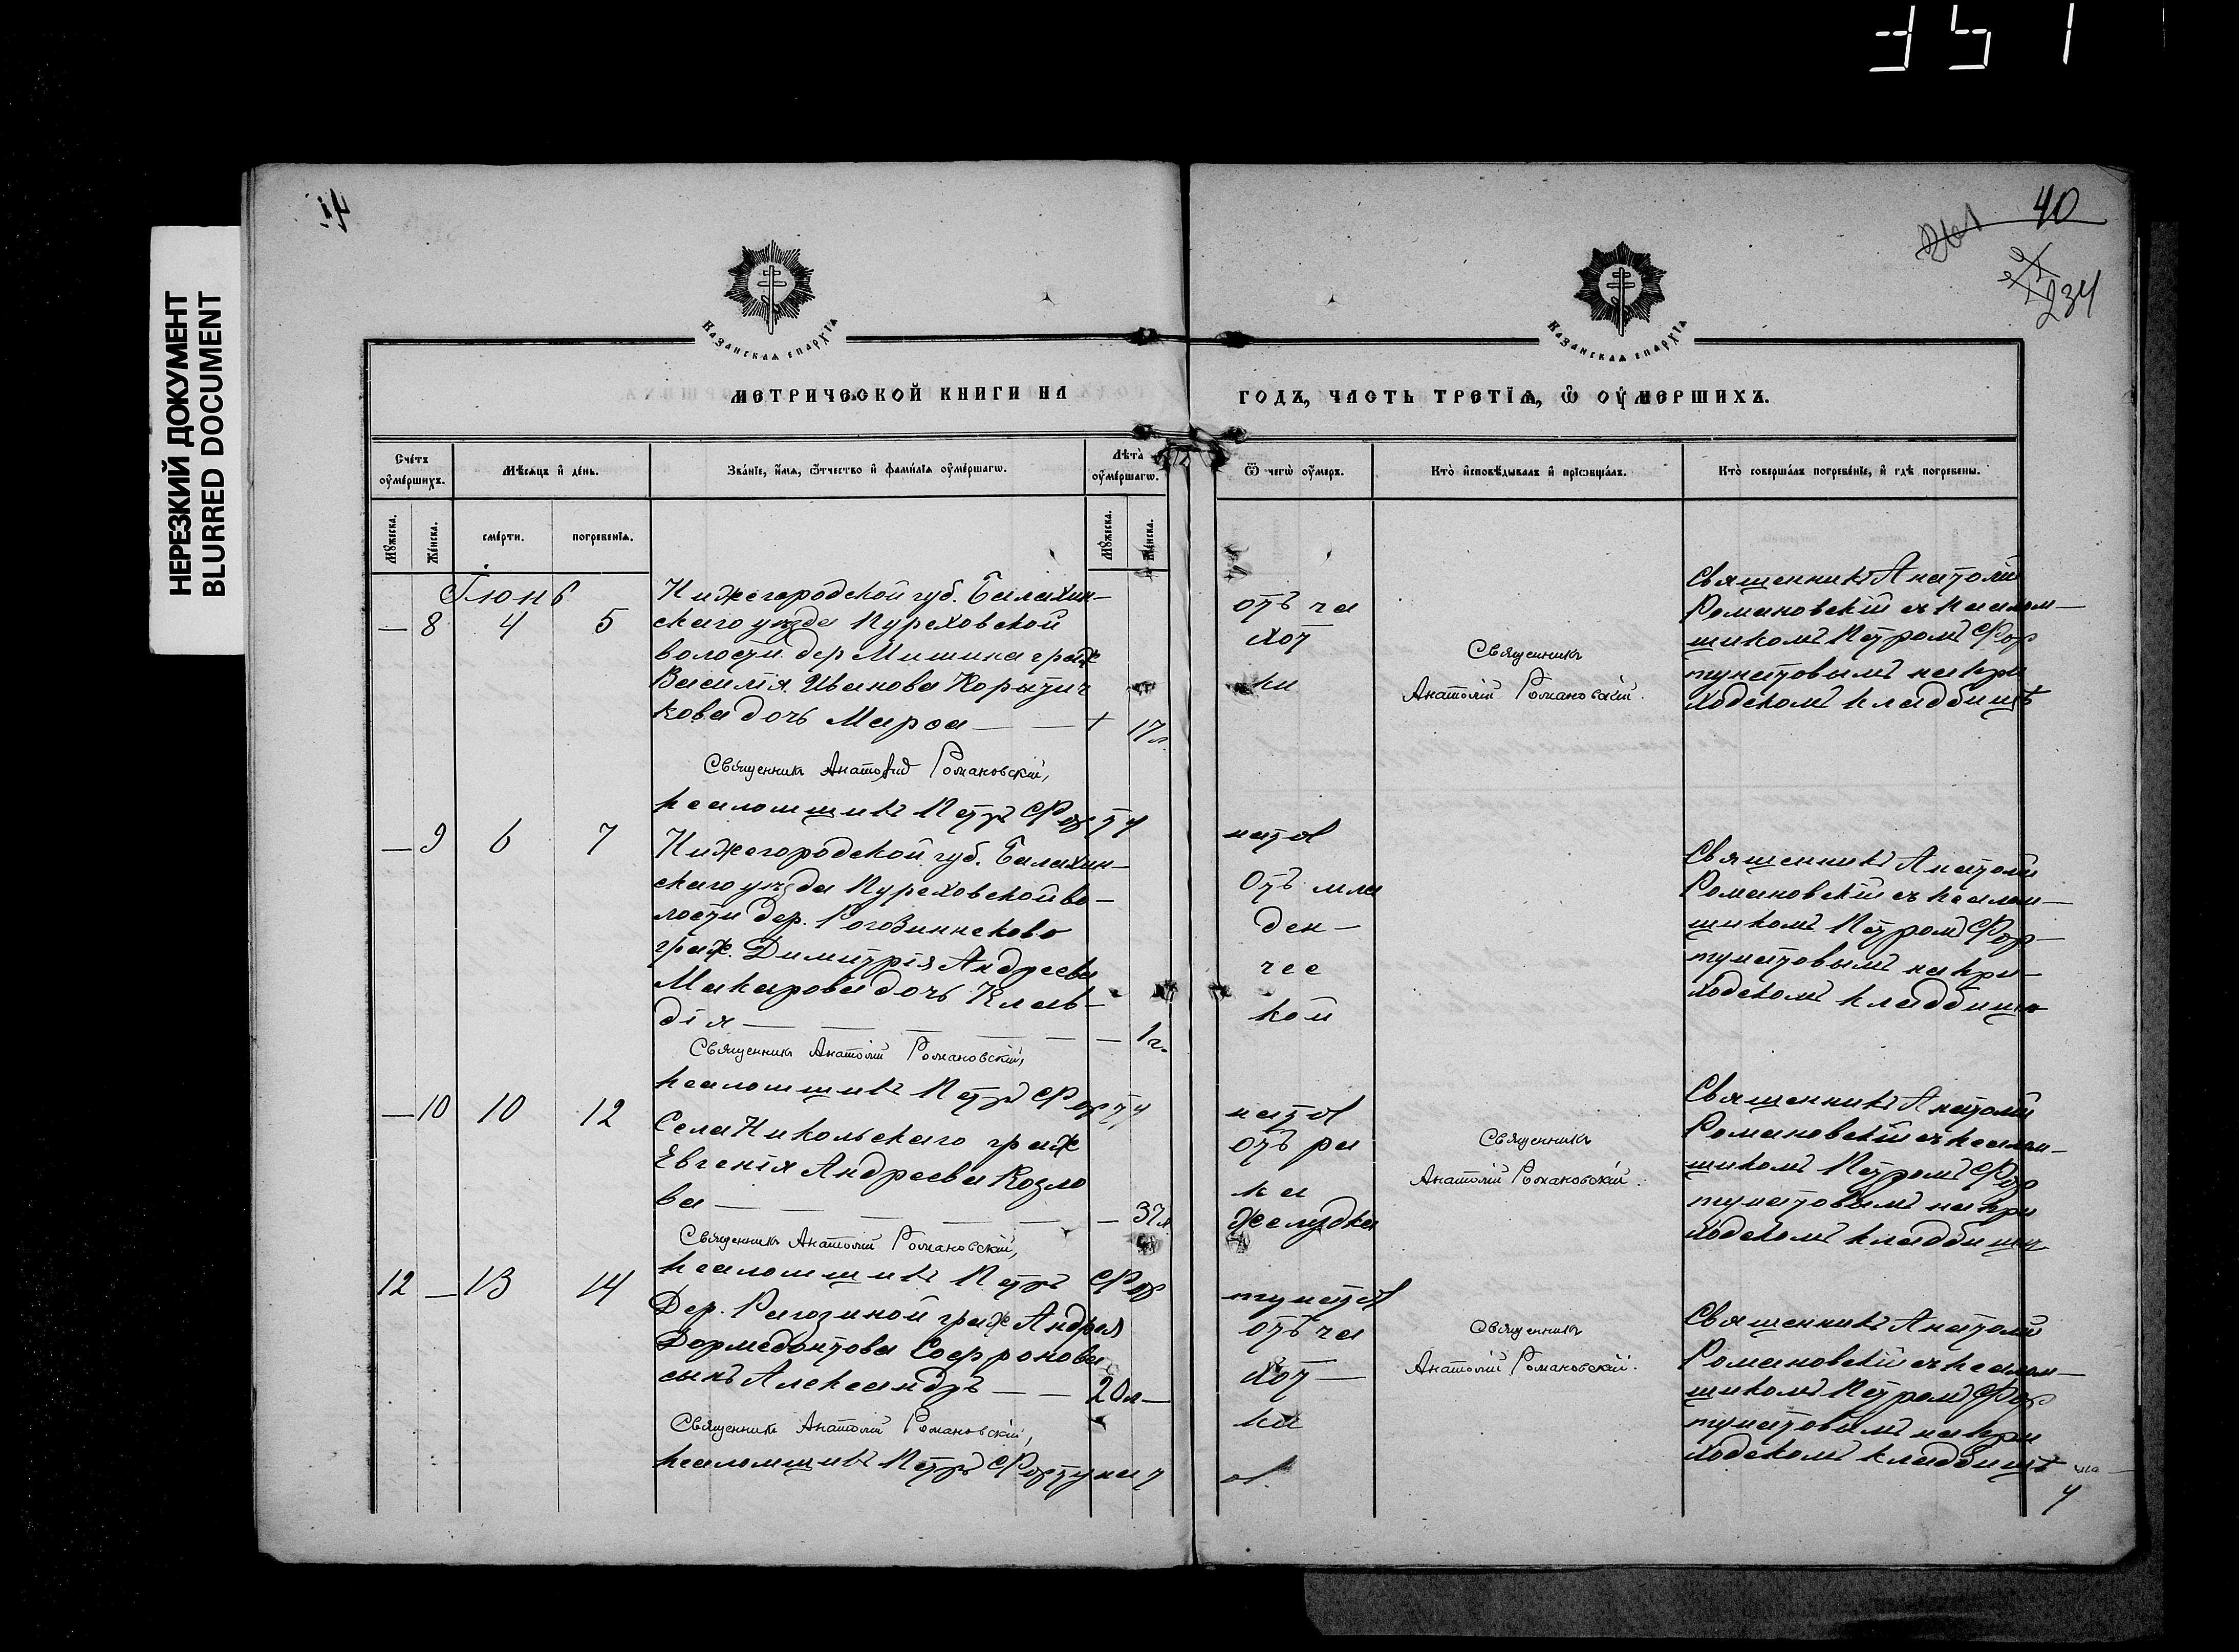 351
НЕРЕЗКИЙ ДОКУМЕНТ
BLURRED DOCUMENT
40
234
КАЗАНСКАѦ ЕПАРХІА
КАЗАНСКАѦ ЕПАРХІА
МЕТРИЧЕСКОЙ КНИГИ НА ГОДЪ, ЧАСТЬ ТРЕТІѦ, Ѽ ОУМЕРШИХЪ.
Счетъ оумершихъ.
Мѣсѧцъ и день.
Званіе, имѧ, ѿтчество и фамиліѧ оумершагѡ.
Лѣта оумершагѡ.
Ѿ чегѡ оумеръ.
Кто исповѣдывалъ и пріѡбщалъ.
Кто совершалъ погребеніе, и гдѣ погребены.
Мꙋжеска.
Женска.
смерти.
погребеніѧ.
Мꙋжеска.
Женска.
Іюнь
— 8 4 5
Нижегородской губ. Балахин-
скаго уѣзда Пуреховской
волости дер Мишина граж
Василія Иванова Корытич
кова дочь Марѳа — — 17 л.
отъ ча
хот
ки
Священникъ
Анатолій Романовскій.
Священникъ Анатолій
Романовскій съ псалом-
щикомъ Петромъ Фор
тунатовымъ на при
ходскомъ кладбищѣ
Священникъ Анатолій Романовскій,
псаломщикъ Петръ Форту
натов
— 9 6 7
Нижегородской губ. Балахин-
скаго уѣзда Пуреховской во-
лости дер. Рогозиннсково
граж. Димитрія Андреева
Макарова дочь Клав-
дія — — — — — — 1 г.
Отъ мла
ден-
чес
кой
Священникъ Анатолій
Романовскій съ псалом-
щикомъ Петромъ Фор-
тунатовымъ на при-
ходскомъ кладбищѣ
Священникъ Анатолій Романовскій,
псаломщикъ Петръ Форту
натов
— 10 10 12
Села Никольскаго граж
Евгенія Андреева Козло
ва — — — — — — 37 л
отъ ра
ка
желудка
Священникъ
Анатолій Романовскій.
Священникъ Анатолій
Романовскій съ псалом-
щикомъ Петромъ Фор
тунатовымъ на при
ходскомъ кладбищѣ
Священникъ Анатолій Романовскій,
псаломщикъ Петръ Фор
тунатов
12 — 13 14
Дер. Рагозиной граж Андрея
Дормедонтова Софронова
сынъ Александръ — — 20 л —
отъ ча
хот —
ки
Священникъ
Анатолій Романовскій.
Священникъ Анатолій
Романовскій съ псалом-
щикомъ Петромъ Фор
тунатовымъ на при
ходскомъ кладбищѣ
Священникъ Анатолій Романовскій,
псаломщикъ Петръ Фортунат
ов.